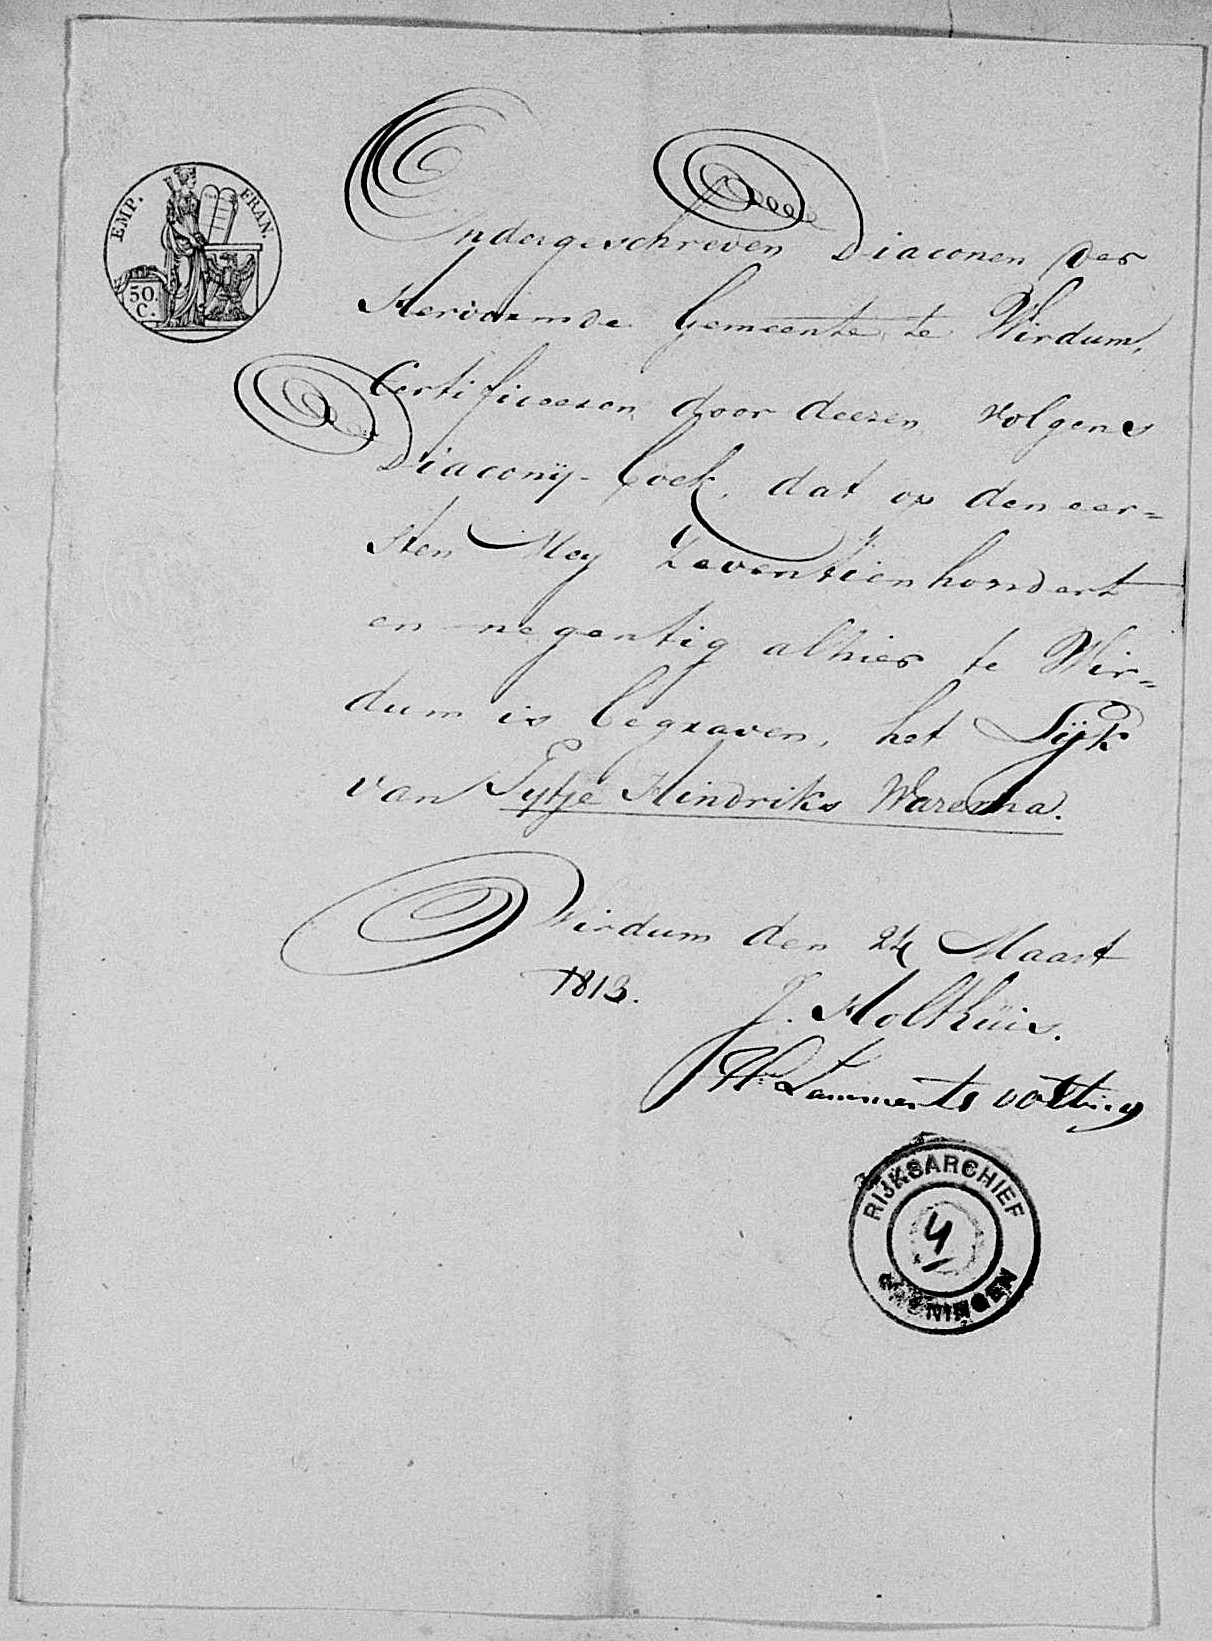 EMP. FRAN.
50.
C.
Ondergeschreven Diaconen der
Hervormde Gemeente te Wirdum,
Certificeeren door deezen volgens
Diaconij-boek, dat op den eer=
sten Mey Zeventienhondert
en negentig alhier te Wir=
dum is begraven, het Lijk
van Tytje Hindriks Warema.
Wirdum den 24 Maart
1813.
J. Holthüis.
H. Lammerts
RIJKSARCHIEF
GRONINGEN